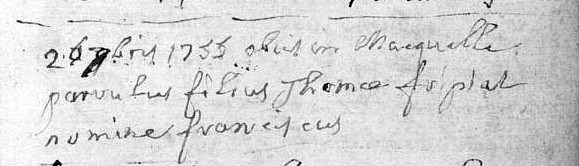 26 7bris 1755 obiit in Macquelle
parvulus filius Thomae
nomine franciscus